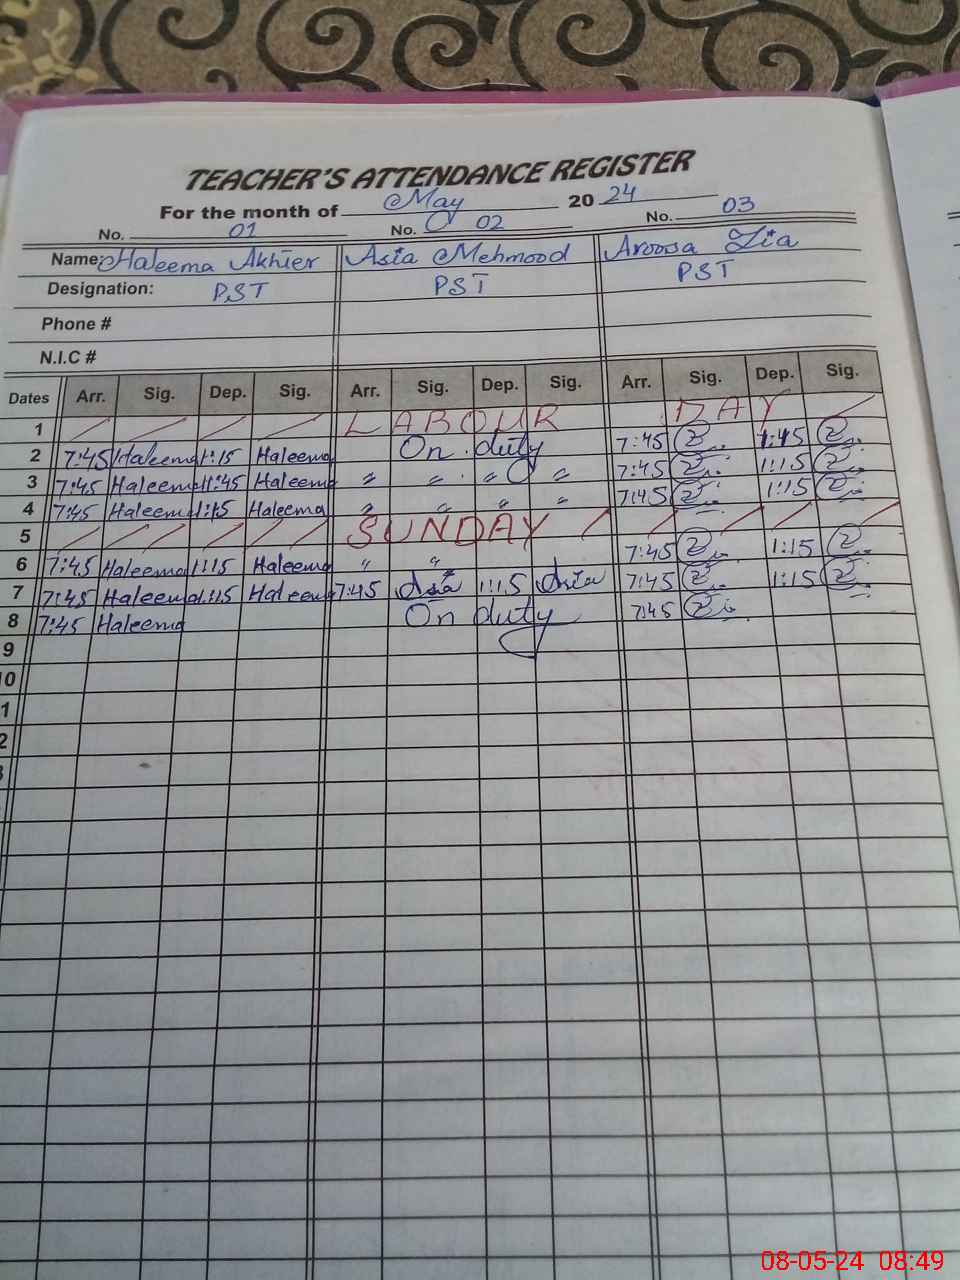 TEACHER'S ATTENDANCE REGISTER
For the month of May 2024
No. 01 No. 02 No. 03
Name: Haleema Akhter Asia Mehmood Aroosa Zia
Designation: PST PST PST
Phone #
N.I.C #
Dates Arr. Sig. Dep. Sig. Arr. Sig. Dep. Sig. Arr. Sig. Dep. Sig.
1 LABOUR DAY
2 7:45 Haleema 1:15 Haleema On duty 7:45 1:45
3 7:45 Haleema 11:45 Haleema " " " " 7:45 1:15
4 7:45 Haleema 1:15 Haleema " " " " 7:45 1:15
5 SUNDAY
6 7:45 Haleema 1:15 Haleema " " 7:45 1:15
7 7:45 Haleema 1:15 Haleema 7:45 Asia 1:15 Asia 7:45 1:15
8 7:45 Haleema On duty 7:45
9
10
1
2
3
08-05-24 08:49